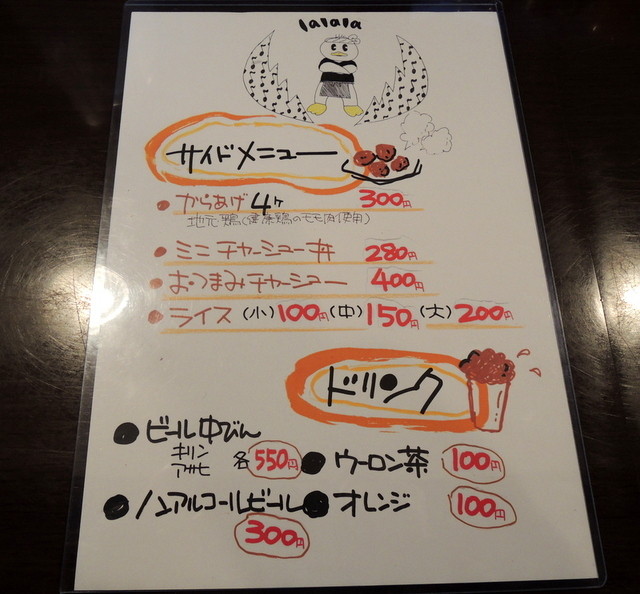 lalala
サイドメニュー
からあげ 4ヶ 300円
地元鶏(健康鶏のモモ肉使用)
ミニチャーシュー丼 280円
おつまみチャーシュー 400円
ライス (小) 100円 (中) 150円 (大) 200円
ドリンク
ビール中びん
キリン
アサヒ 各 550円
ウーロン茶 100円
ノンアルコールビール
300円
オレンジ 100円